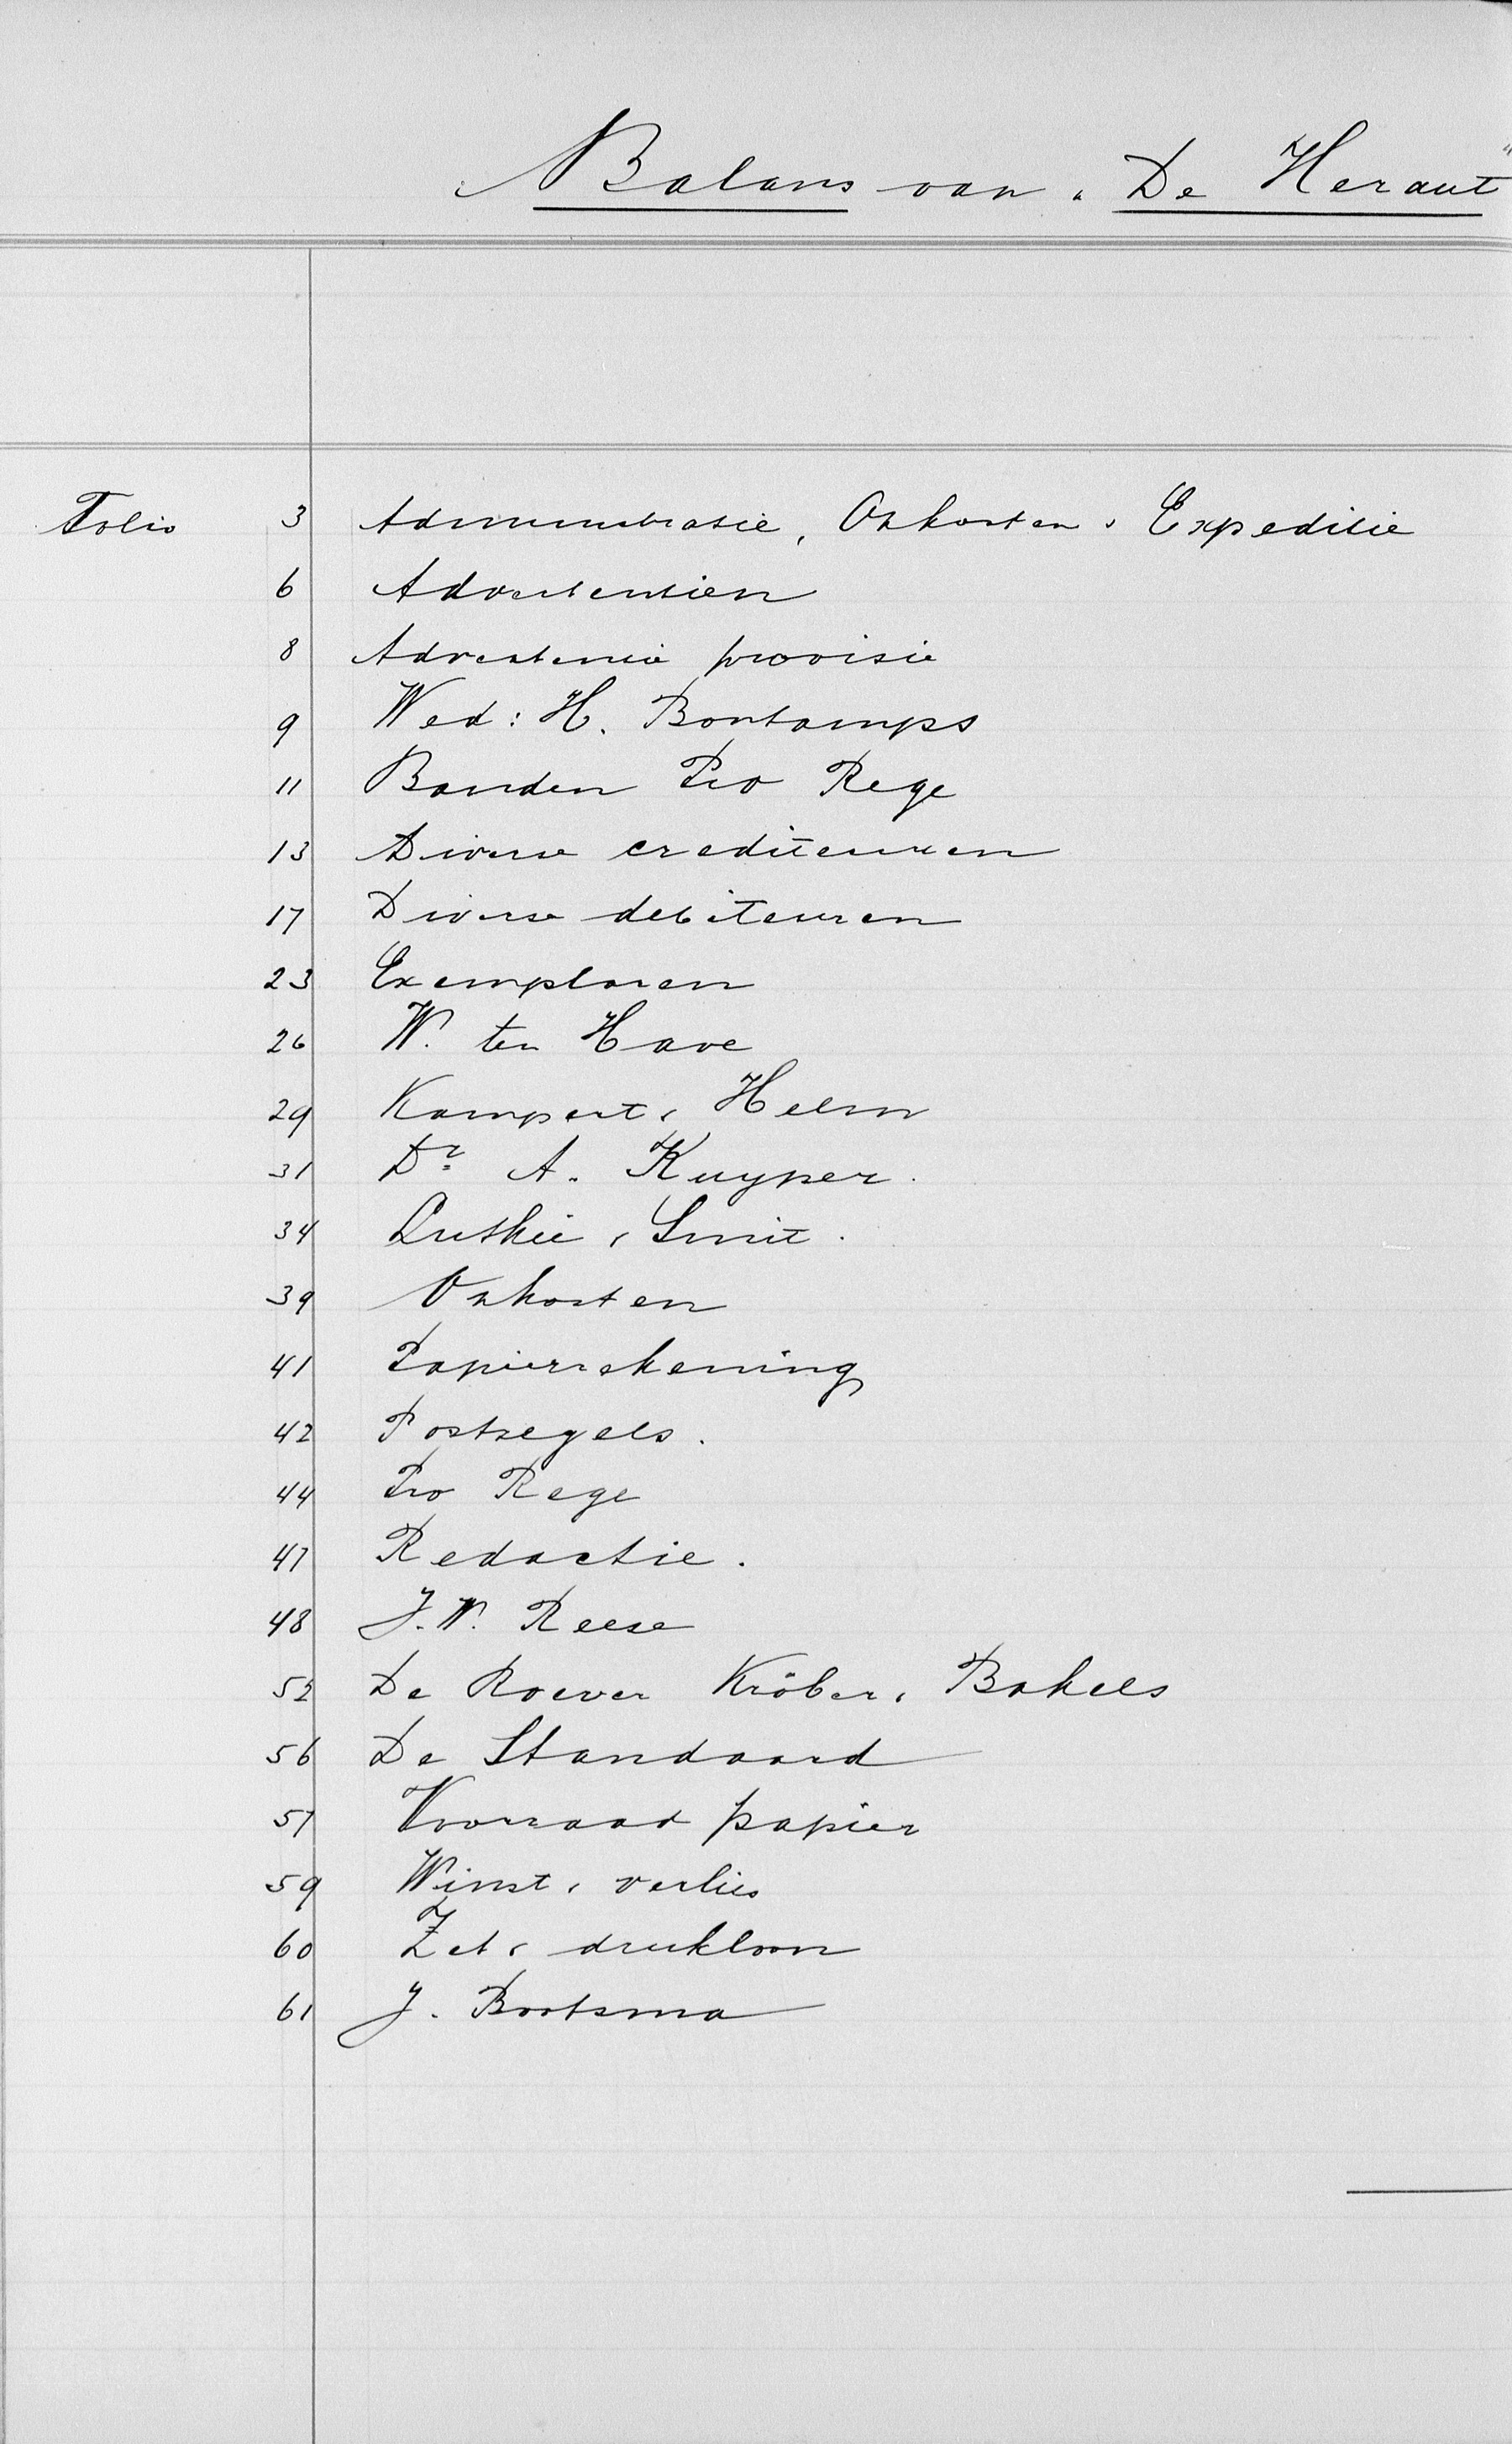 Balans van "De Heraut"
Folio 3 Administratie, Onkosten & Expeditie
6 Advertentien
8 Advertentie provisie
9 Wed: H. Bontamps
11 Banden Pro Rege
13 Diverse crediteuren
17 Diverse debiteuren
23 Exemplaren
26 W. ten Have
29 Kampert & Helm
31 Dr A. Kuyper.
34 Ruthie & Smit.
39 Onkosten
41 Papierrekening
42 Postzegels.
44 Pro Rege
47 Redactie.
48 J. W. Reese
52 De Roever Kröber & Bakels
56 De Standaard
57 Voorraad papier
59 Winst & verlies
60 Zet & drukloon
61 J. Bootsma